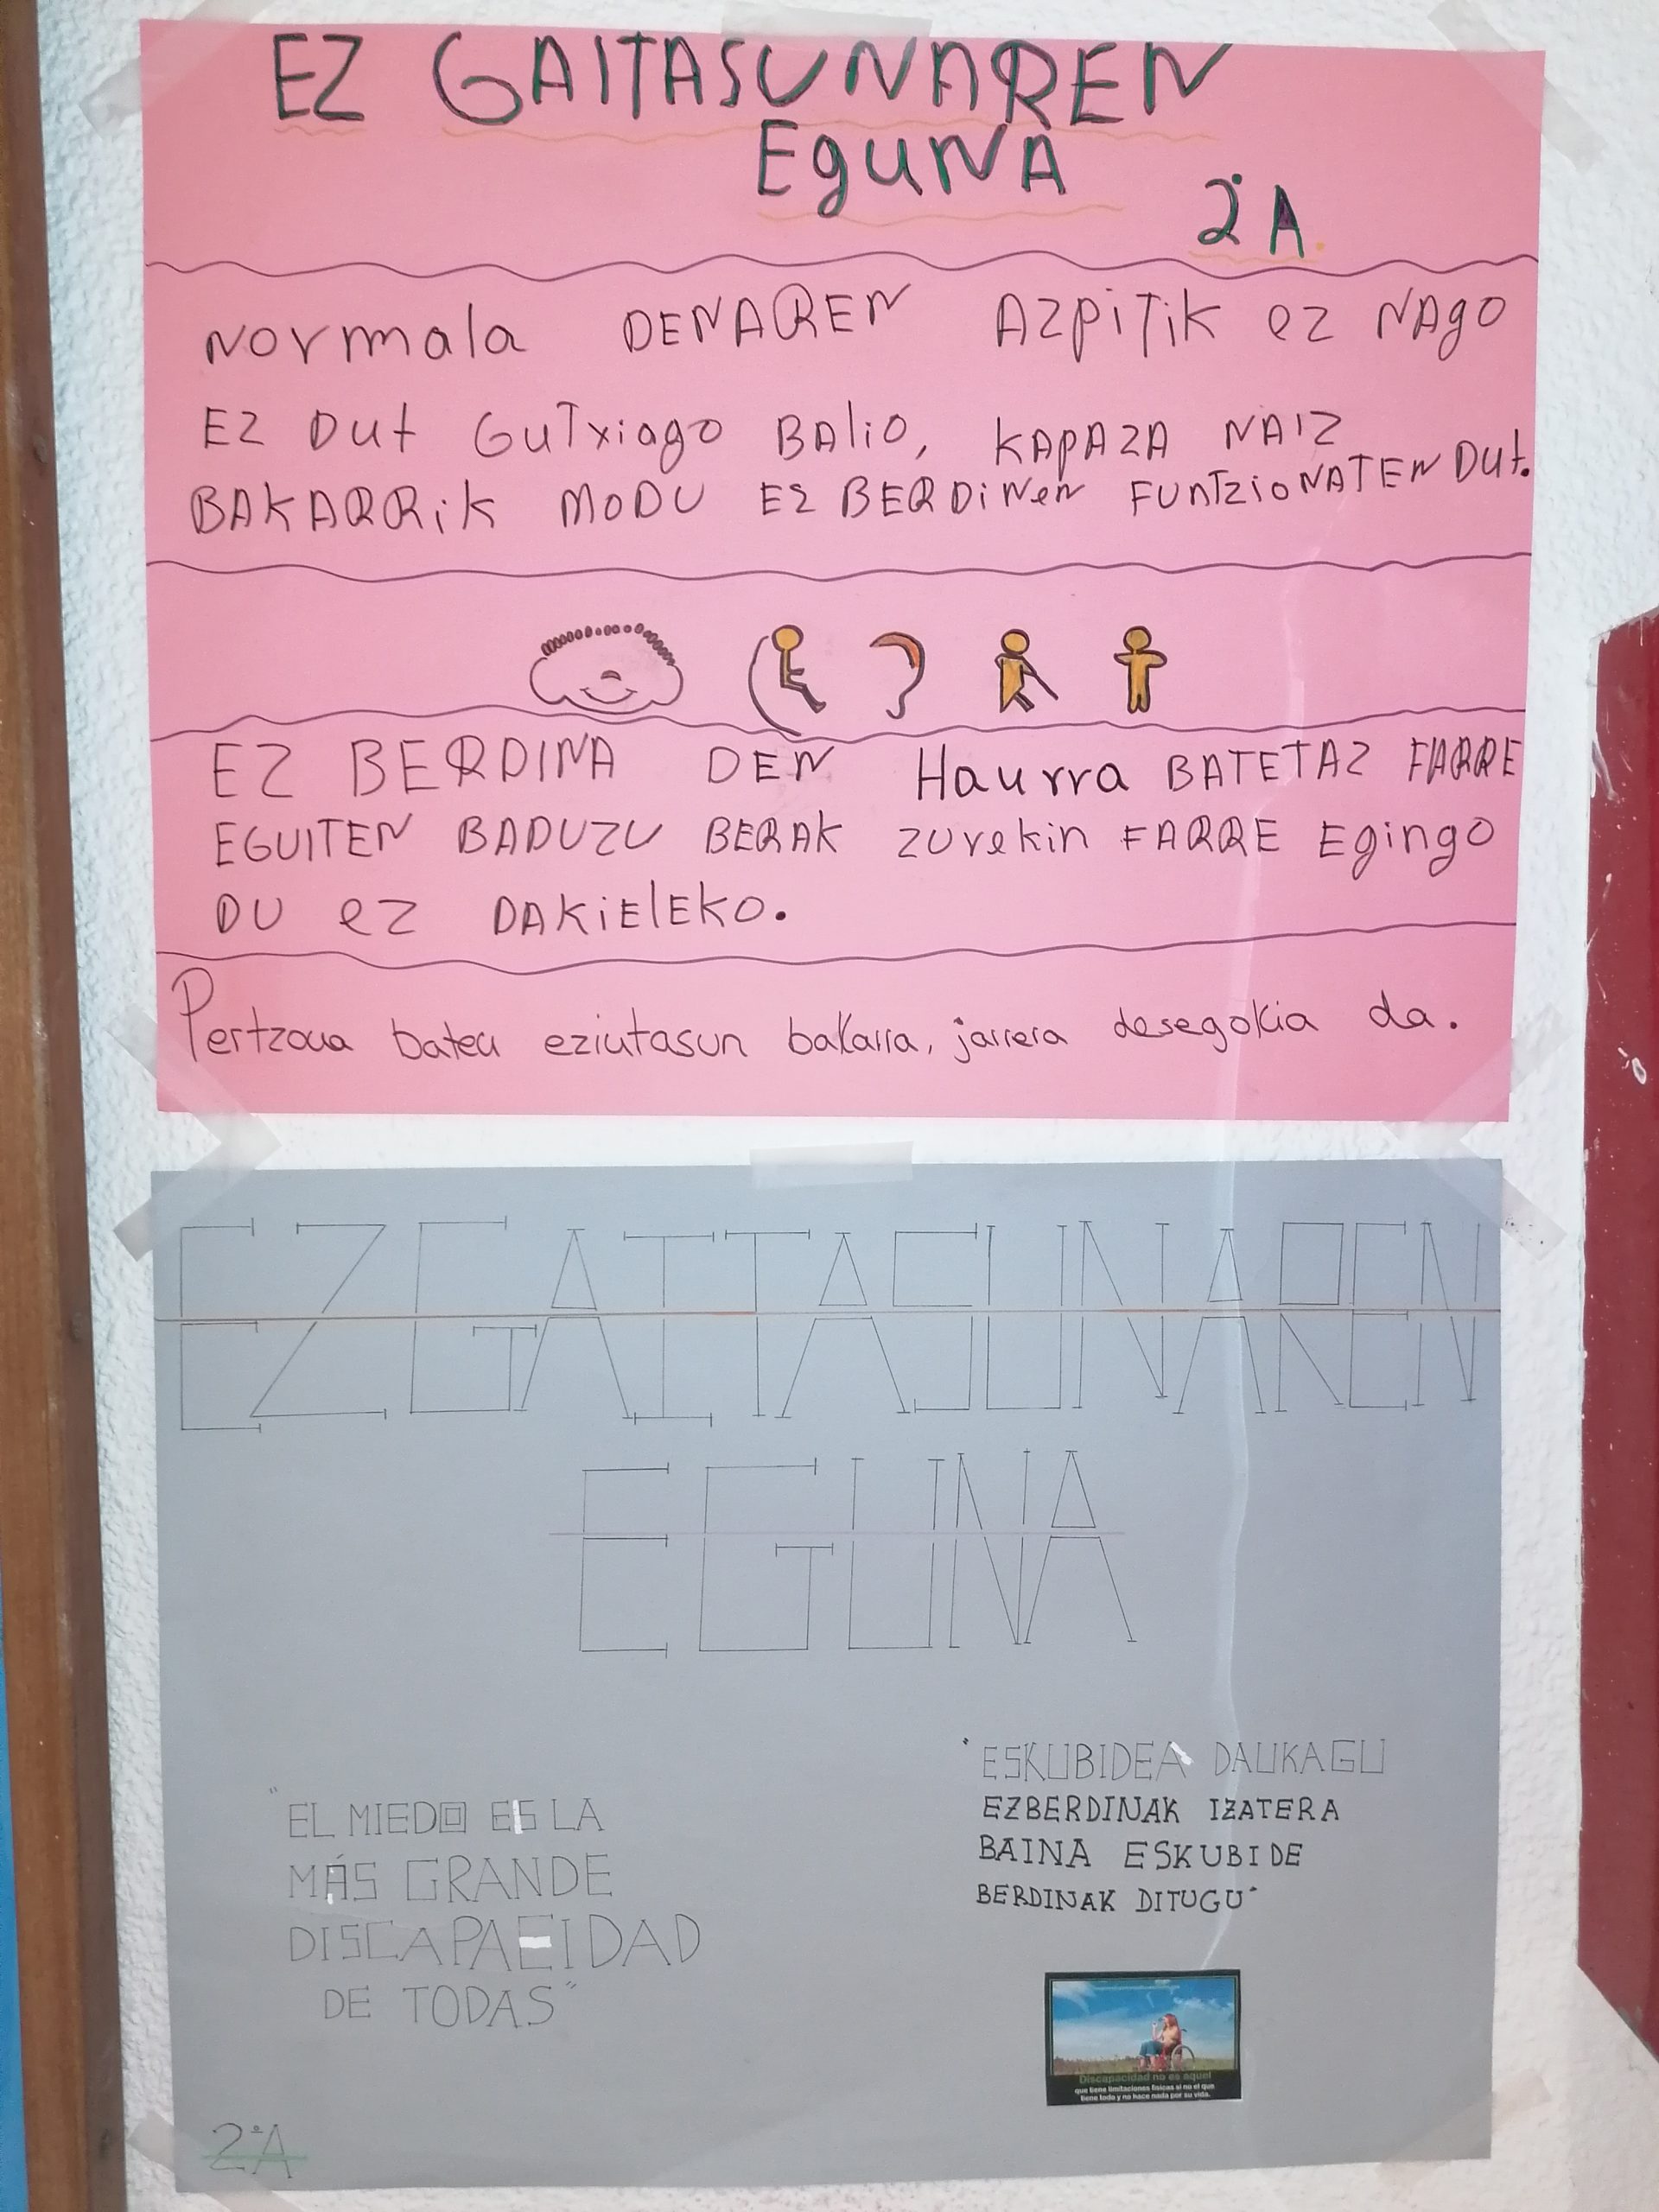 EZ GAITASUNAREN
EgUNA
2ºA.
Normala DENAREN AZPITIK ez NAgo
EZ DUt GUTxiago BAliO, KAPAZA NAIZ
BAKARRiK MODU EZ BERDINEN FUNTZIONATEN DUt.
EZ BERDINA DEN Haurra BATETAZ FARRE
EGUITEN BADUZU BERAK ZUrekin FARRE Egingo
DU ez DAKIElEKO.
Pertzona baten ezintasun bakarra, jarrera desegokia da.
EZ GAITASUNAREN
EGUNA
"ESKUBIDEA DAUKAGU
EZBERDINAK IZATERA
BAINA ESKUBIDE
BERDINAK DITUGU"
"EL MIEDO ES LA
MÁS GRANDE
DISCAPACIDAD
DE TODAS"
Discapacidad no es aquel
que tiene limitaciones físicas si no el que
tiene todo y no hace nada por su vida.
2ºA